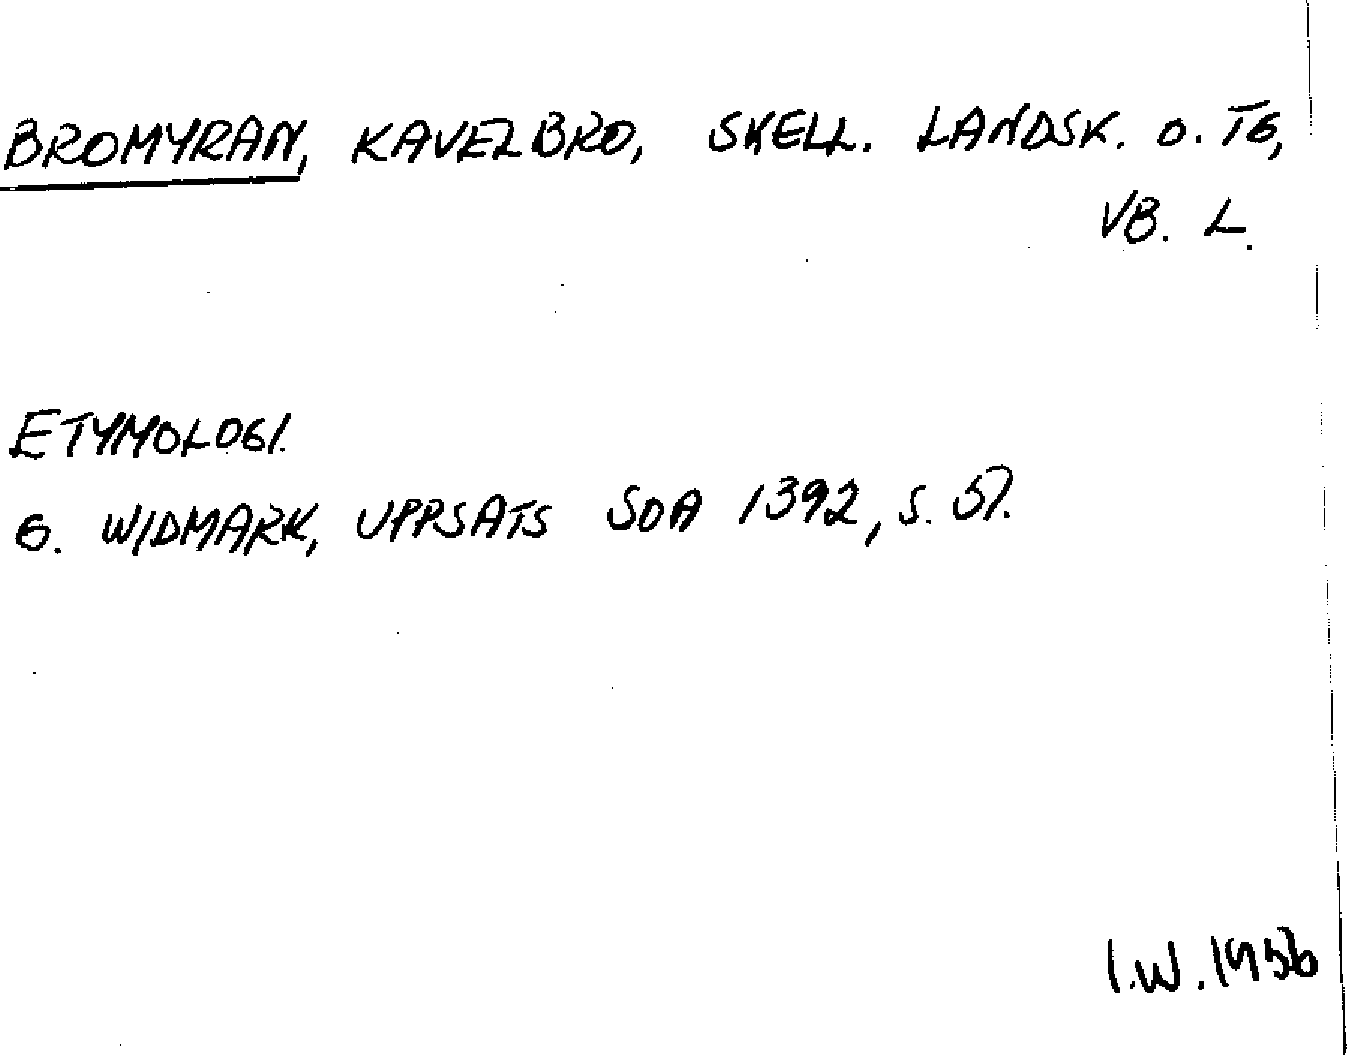 BROMYRAN, KAVELBRO, SKELL. LANDSK. O. TG,
VB. L.
ETYMOLOGI.
G. WIDMARK, UPPSATS SOA 1392, S. 57.
I.W. 1956